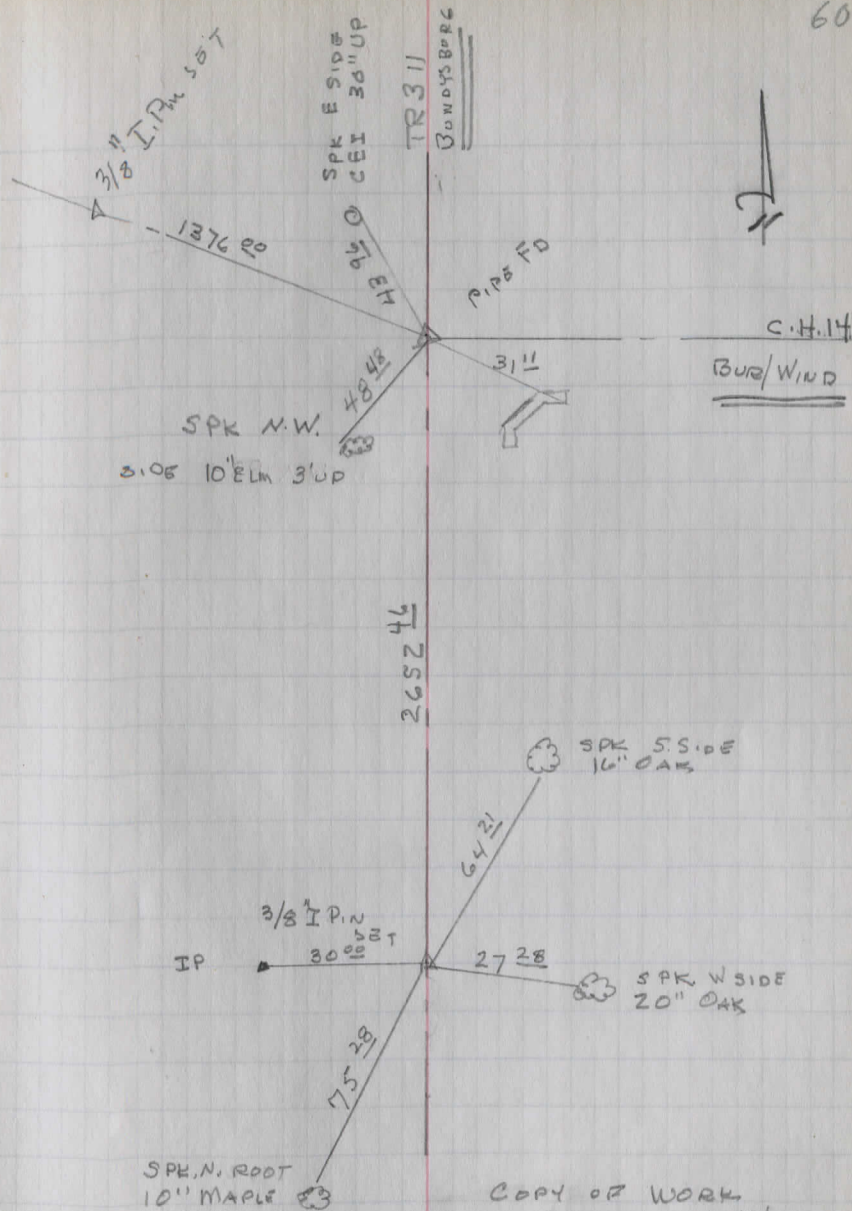 60
3/8" I. Pin SET
SPK E SIDE
CEI 30" UP
TR 311
BUNDYSBURG
1376 20
43 96
PIPE FD
C.H. 14
BUR/WIND
31 11
48 48
SPK N.W.
SIDE 10" ELM 3' UP
2652 46
SPK S. SIDE
16" OAK
64 21
3/8" I PIN
SET
IP
30 00
27 28
SPK W SIDE
20" OAK
75 28
SPK. N. ROOT
10" MAPLE
COPY OF WORK